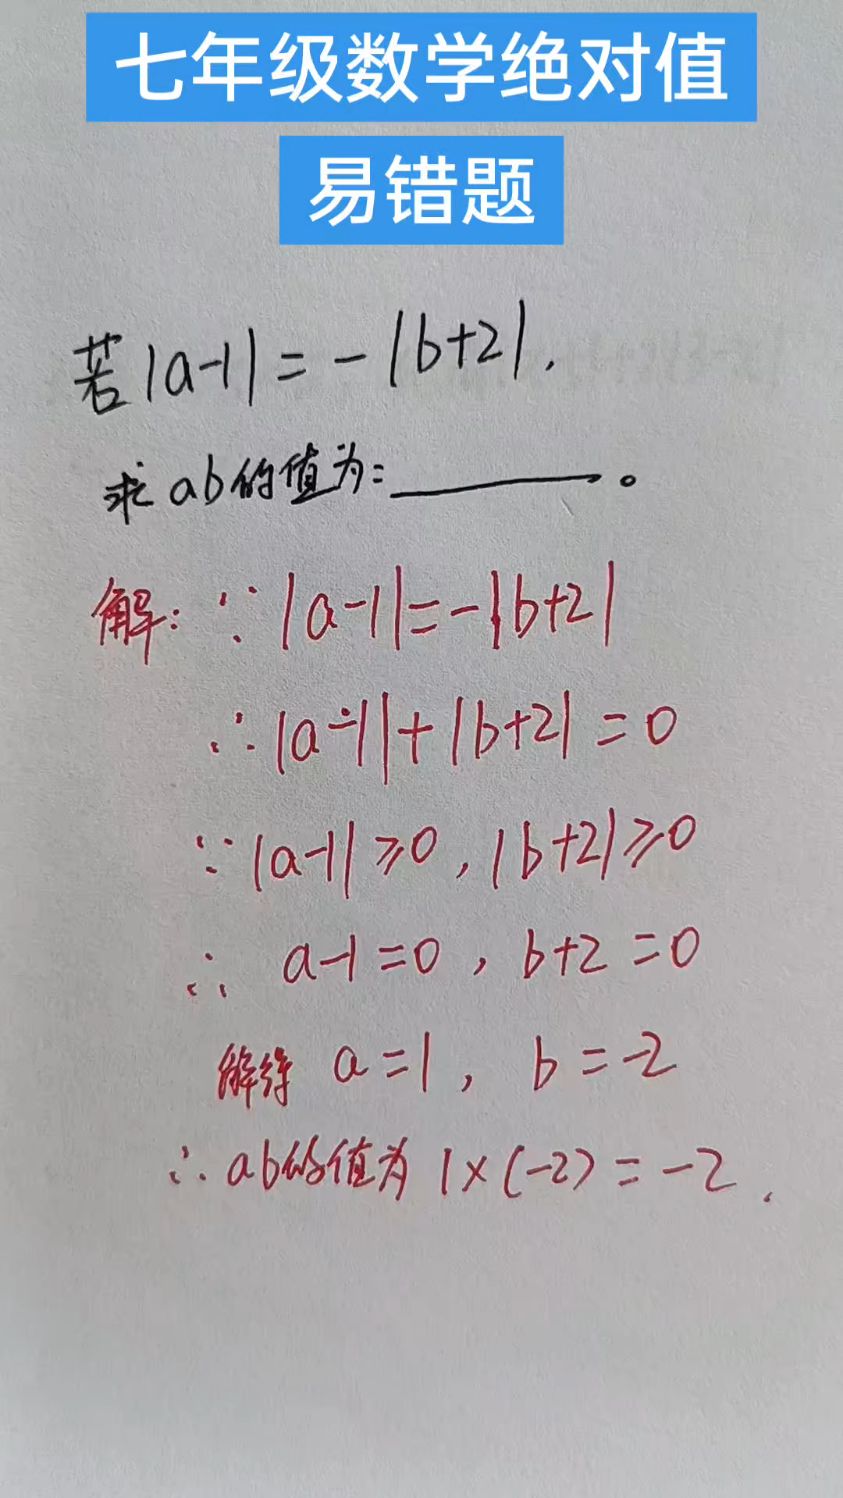 七年级数学绝对值
易错题
若|a-1|=-|b+2|,
求ab的值为:______。
解:∵|a-1|=-|b+2|
∴|a-1|+|b+2|=0
∵|a-1|≥0,|b+2|≥0
∴ a-1=0,b+2=0
解得 a=1, b=-2
∴ab的值为 1×(-2)=-2.